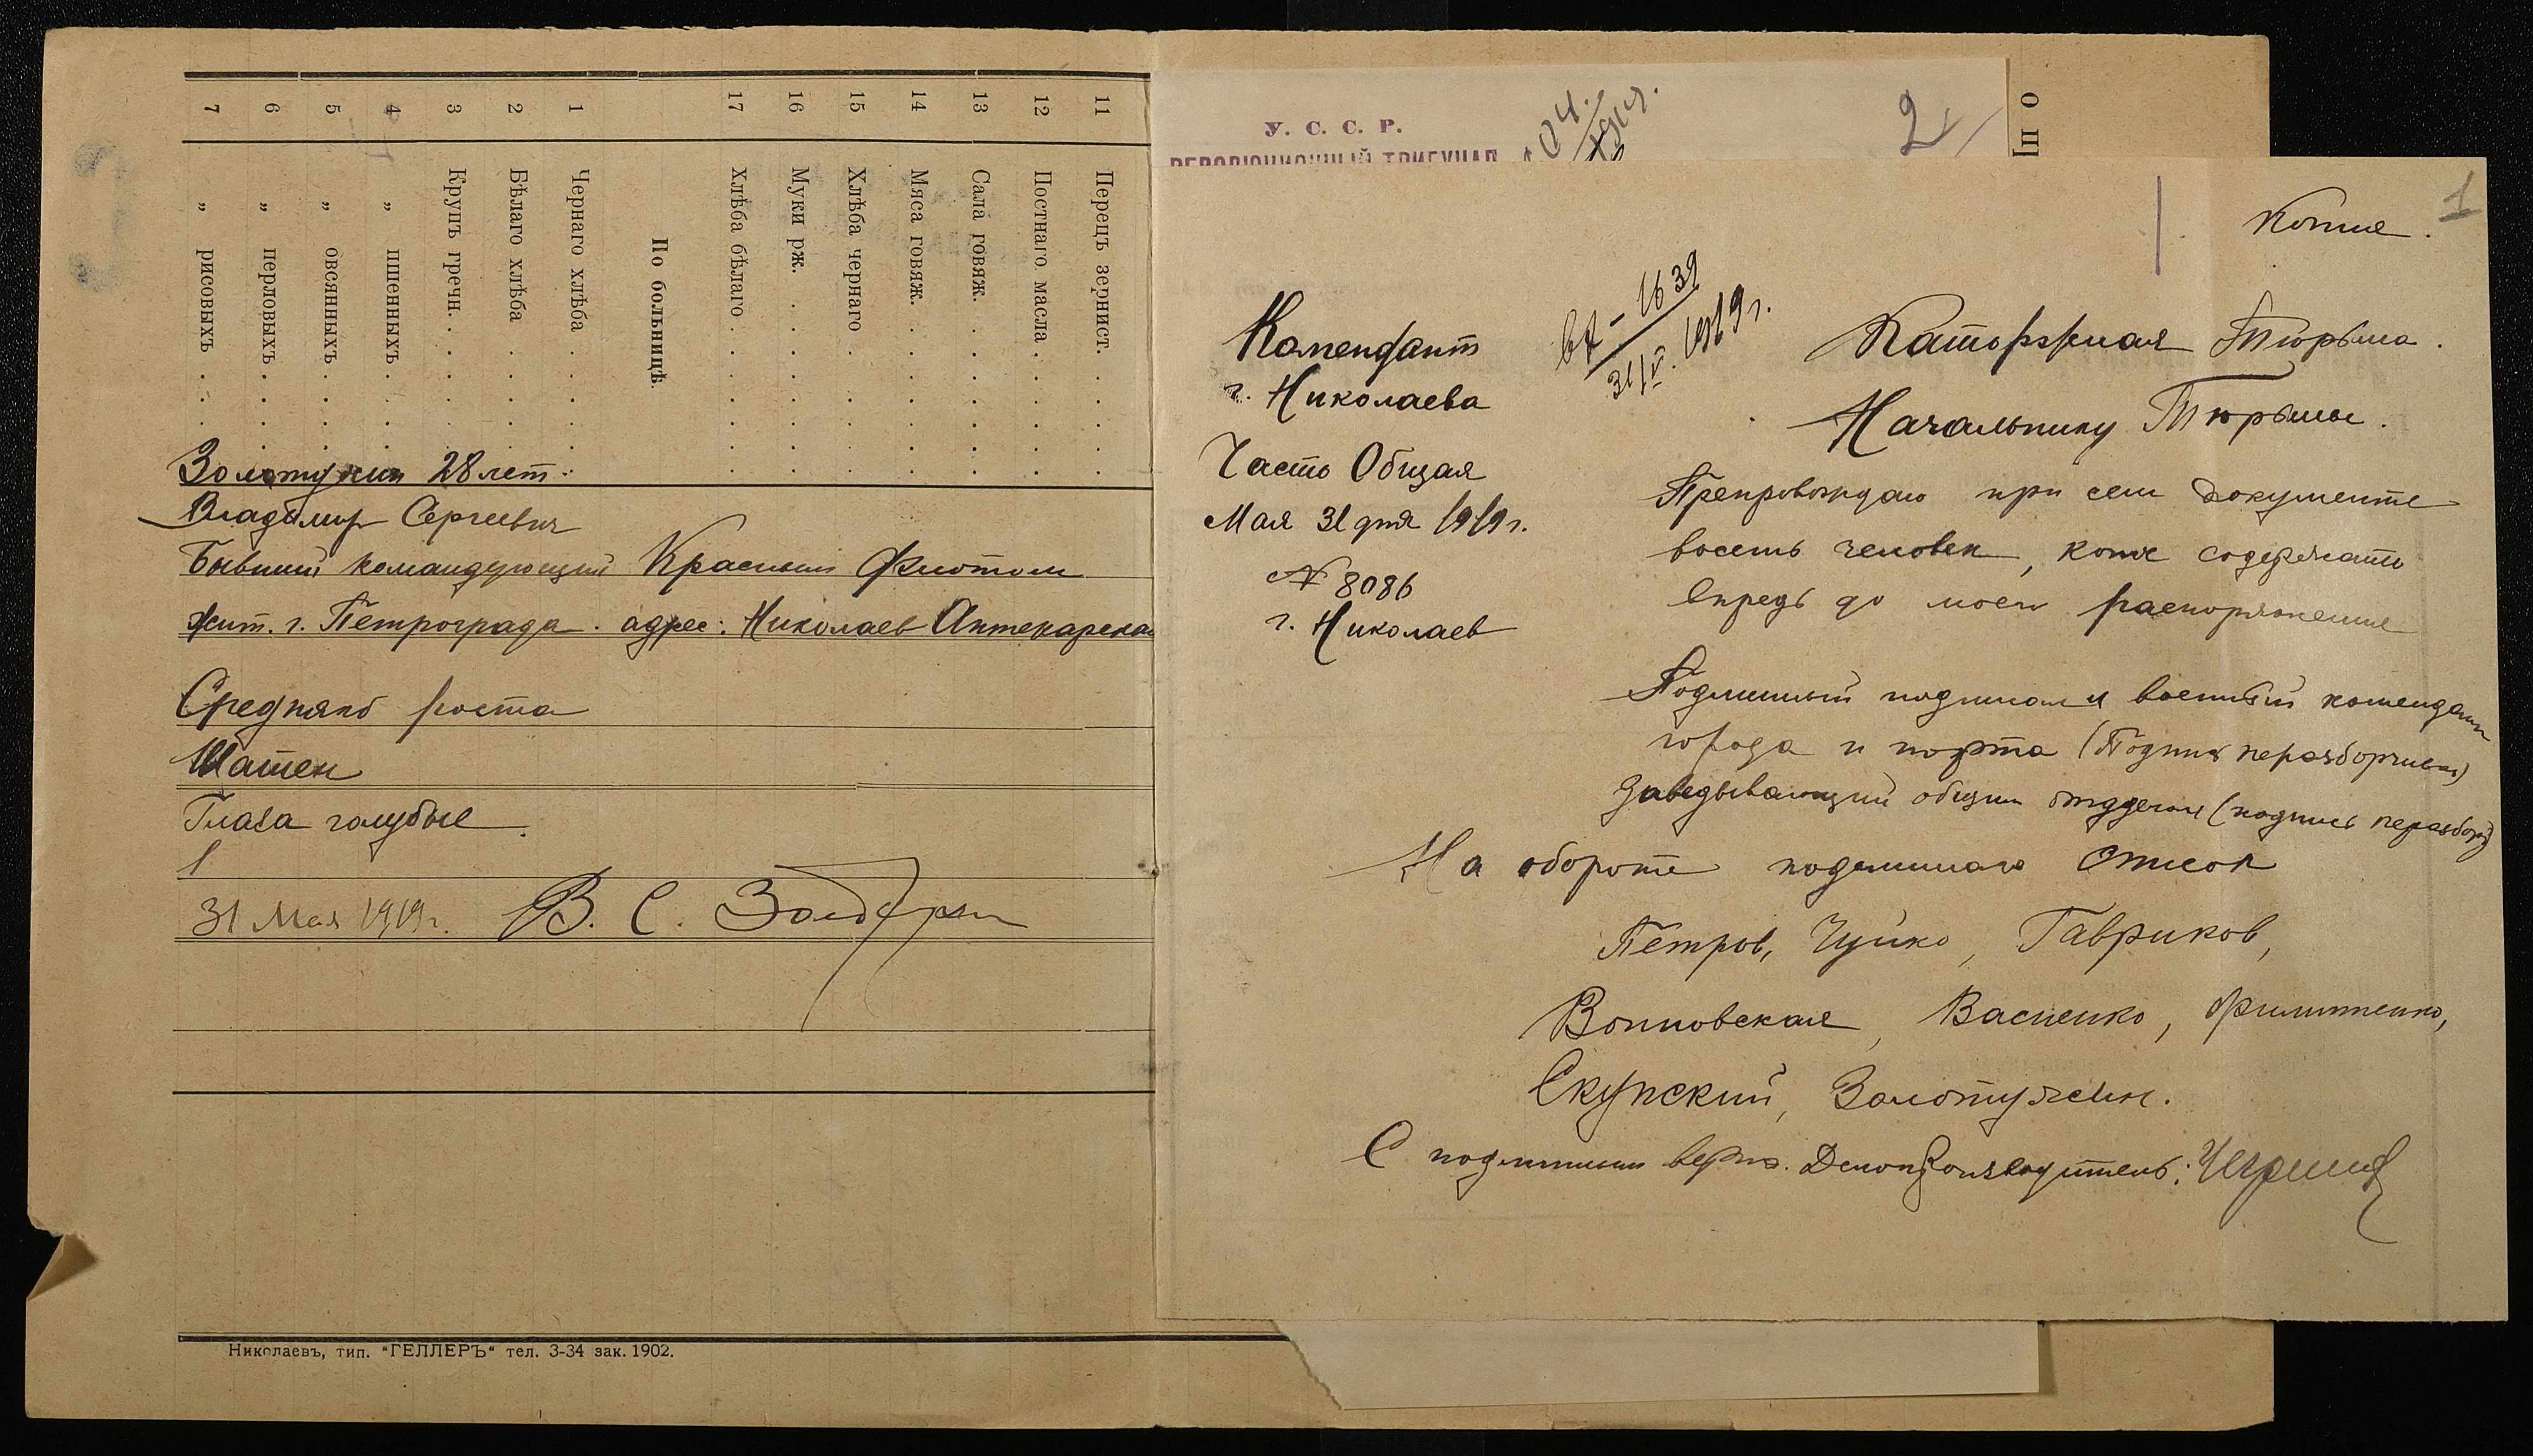 7 „ рисовыхъ . . . .
6 „ перловыхъ . . . .
5 „ овсянныхъ . . . .
4 „ пшенныхъ . . . .
3 Крупъ гречн. . . . .
2 Бѣлаго хлѣба . . . .
1 Чернаго хлѣба . . . .
По больницѣ.
17 Хлѣба бѣлаго . . . .
16 Муки рж. . . . . .
15 Хлѣба чернаго . . . .
14 Мяса говяж. . . . .
13 Сала говяж. . . . .
12 Постнаго масла . . . .
11 Перецъ зернист. . . . .
Золотухин 28 лет.
Владимир Сергеевич
Бывший командующий Красным Флотом
жит. г. Петрограда. адрес: Николаев Аптекарская
Средняго роста
Шатен
Глаза голубые.
31 Мая 1919 г. В. С.
Николаевъ, тип. "ГЕЛЛЕРЪ" тел. 3-34 зак. 1902.
У. С. С. Р.
РЕВОЛЮЦИОННЫЙ ТРИБУНАЛ
2
О Щ
1
Копие.
Вх - 1639
31/V. 1919 г.
Комендант
г. Николаева
Часть Общая
Мая 31 дня 1919 г.
№ 8086
г. Николаев
Каторжная Тюрьма.
Начальнику Тюрьмы.
Препровождаю при сем документе
восемь человек, коих содержать
впредь до моего распоряжения
Подлинный подписал военный комендант
города и порта (Подпись неразборчива)
Заведывающий общим отделом (подпись неразбор)
На обороте подлинного список
Петров, Чуйко, Гавриков,
Васненко, Филиппенко,
Скупский, Золотухин.
С подлинным верно. Делопроизводитель: